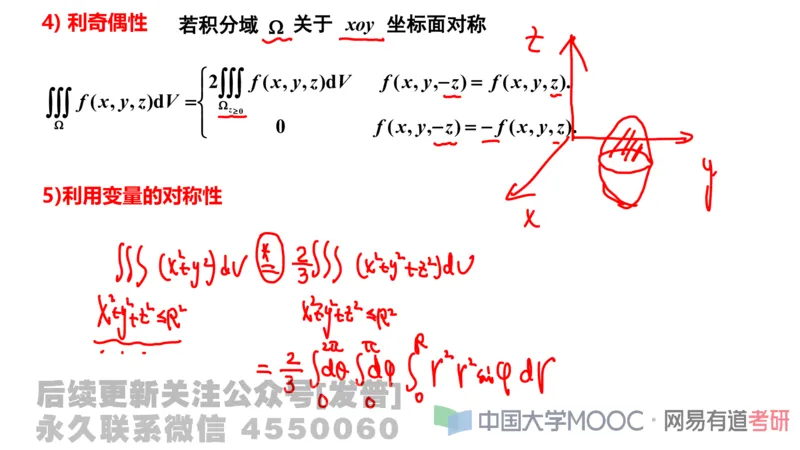 4) 利奇偶性 若积分域 Ω 关于 xoy 坐标面对称
z
∭_Ω f(x, y, z)dV = { 2∭_{Ω_{z≥0}} f(x, y, z)dV f(x, y,−z) = f(x, y, z).
0 f(x, y,−z) = − f(x, y, z).
y
x
5)利用变量的对称性
∭_{x²+y²+z²≤R²} (x²+y²)dV = 2/3 ∭_{x²+y²+z²≤R²} (x²+y²+z²)dV
= 2/3 ∫_0^{2π} dθ ∫_0^π dφ ∫_0^R r² r² sinφ dr
后续更新关注公众号[发普]
永久联系微信 4550060
中国大学MOOC · 网易有道考研